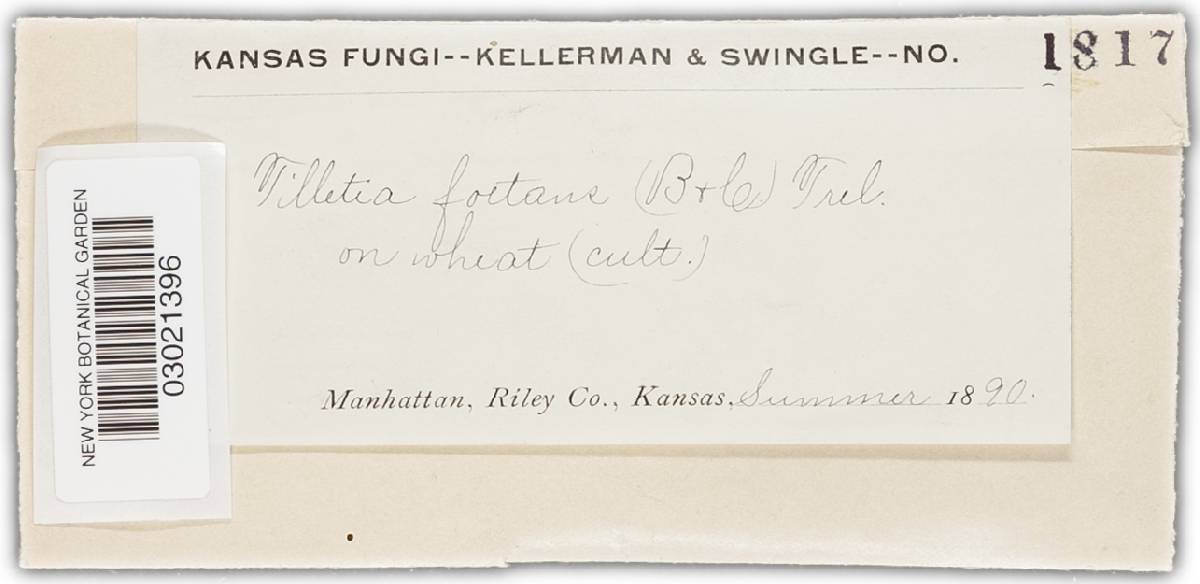 KANSAS FUNGI--KELLERMAN & SWINGLE--NO. 1817
Tilletia foetans (B & C) Trel.
on wheat (cult.)
Manhattan, Riley Co., Kansas, Summer 1890.
NEW YORK BOTANICAL GARDEN
03021396